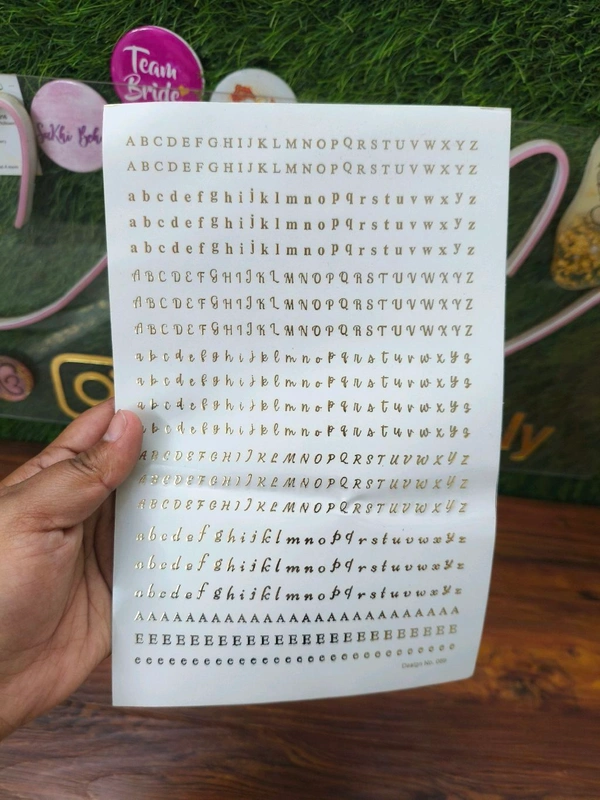 Team
Bride
ABCDEFGHIJKLMNOPQRSTUVWXYZ
ABCDEFGHIJKLMNOPQRSTUVWXYZ
abcdefghijklmnopqrstuvwxyz
abcdefghijklmnopqrstuvwxyz
abcdefghijklmnopqrstuvwxyz
ABCDEFGHIJKLMNOPQRSTUVWXYZ
ABCDEFGHIJKLMNOPQRSTUVWXYZ
ABCDEFGHIJKLMNOPQRSTUVWXYZ
abcdefghijklmnopqrstuvwxyz
abcdefghijklmnopqrstuvwxyz
abcdefghijklmnopqrstuvwxyz
abcdefghijklmnopqrstuvwxyz
ABCDEFGHIJKLMNOPQRSTUVWXYZ
ABCDEFGHIJKLMNOPQRSTUVWXYZ
ABCDEFGHIJKLMNOPQRSTUVWXYZ
abcdefghijklmnopqrstuvwxyz
abcdefghijklmnopqrstuvwxyz
abcdefghijklmnopqrstuvwxyz
AAAAAAAAAAAAAAAAAAAAAAA
EEEEEEEEEEEEEEEEEEEEEEE
eeeeeeeeeeeeeeeeeeeeeee
Design No.